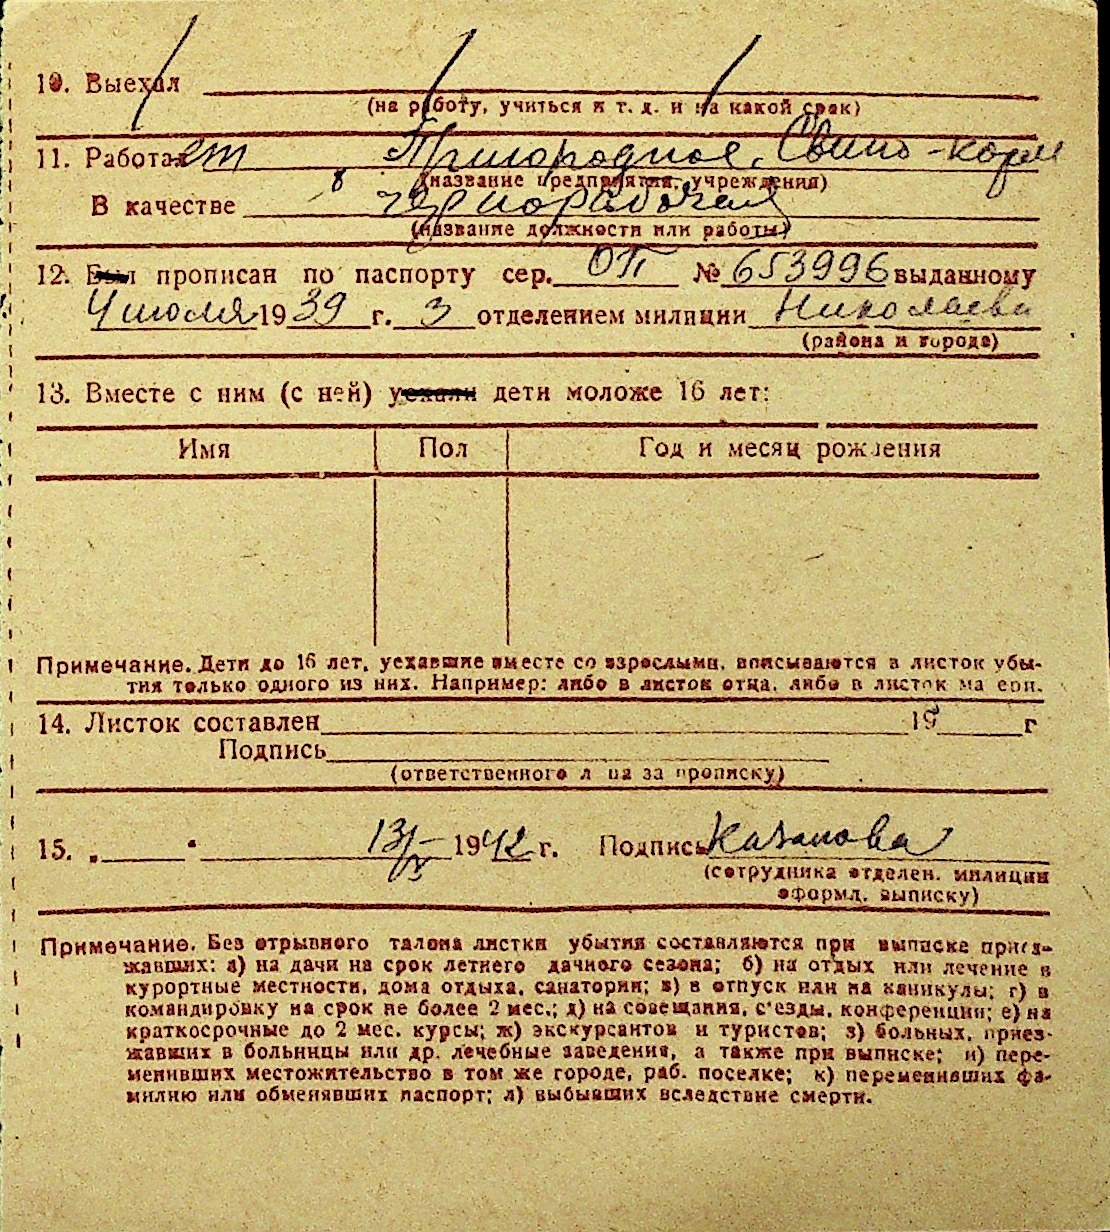 10. Выехал
(на работу, учиться и т. д. и на какой срок)
11. Работает Пригородное. Свино-корм
(название предприятия, учреждения)
В качестве чернорабочая
(название должности или работы)
12. Был прописан по паспорту сер. ОП № 653996 выданному
4 июля 1939 г. 3 отделением милиции Николаева
(района и города)
13. Вместе с ним (с ней) уехали дети моложе 16 лет:
Имя Пол Год и месяц рождения
Примечание. Дети до 16 лет, уехавшие вместе со взрослыми, вписываются в листок убы-
тия только одного из них. Например: либо в листок отца, либо в листок матери.
14. Листок составлен 19 г
Подпись
(ответственного лица за прописку)
15. „ “ 13/IX 1942 г. Подпись Казакова
(сотрудника отделен. милиции
оформл. выписку)
Примечание. Без отрывного талона листки убытия составляются при выписке приез-
жавших: а) на дачи на срок летнего дачного сезона; б) на отдых или лечение в
курортные местности, дома отдыха, санатории; в) в отпуск или на каникулы; г) в
командировку на срок не более 2 мес.; д) на совещания, с'езды, конференции; е) на
краткосрочные до 2 мес. курсы; ж) экскурсантов и туристов; з) больных, приез-
жавших в больницы или др. лечебные заведения, а также при выписке; и) пере-
менивших местожительство в том же городе, раб. поселке; к) переменивших фа-
милию или обменявших паспорт; л) выбывших вследствие смерти.